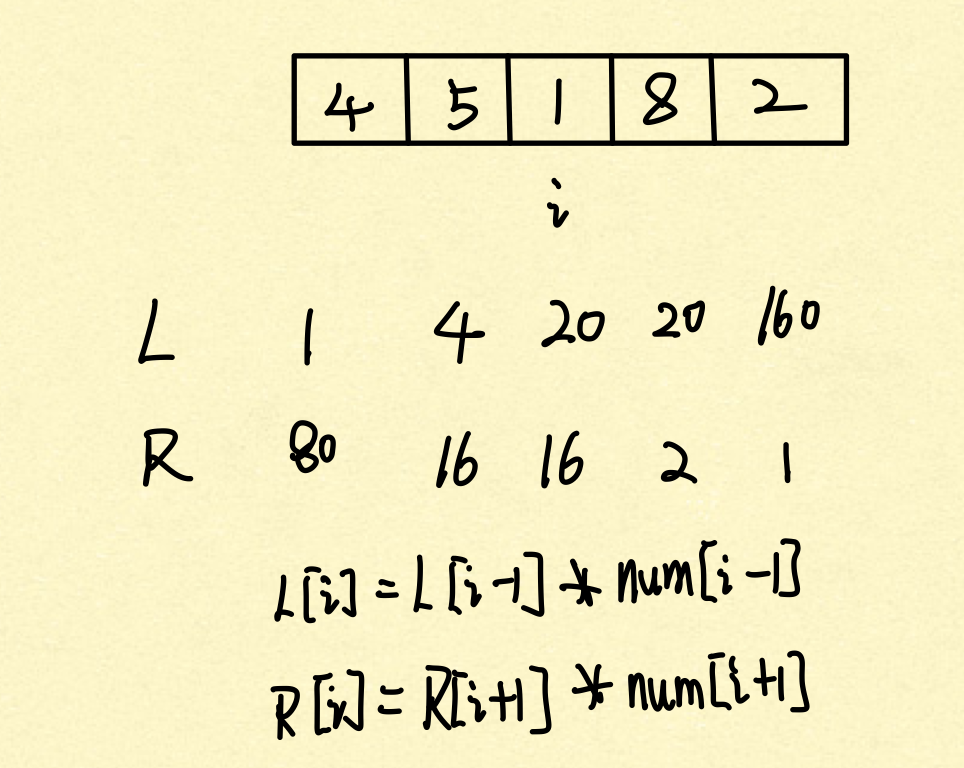 4 5 1 8 2
i
L 1 4 20 20 160
R 80 16 16 2 1
L[i] = L[i-1] * num[i-1]
R[i] = R[i+1] * num[i+1]